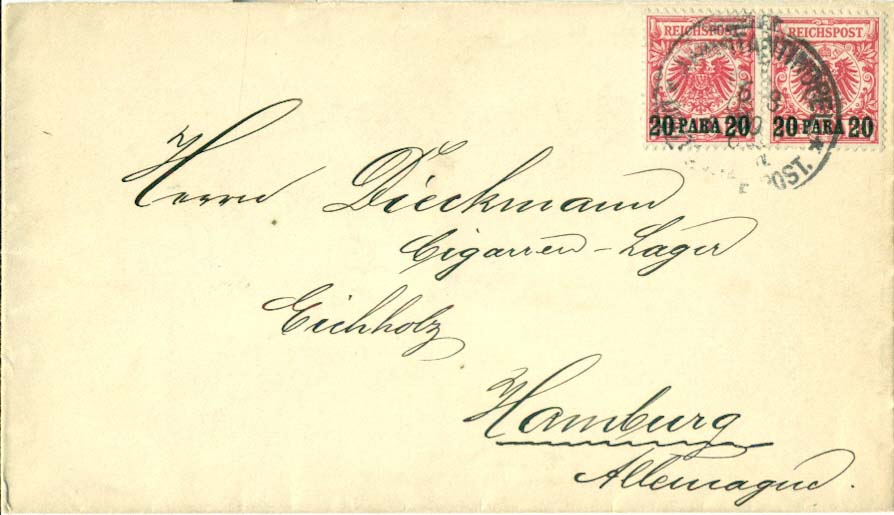 REICHSPOST REICHSPOST
20 PARA 20 20 PARA 20
Herrn Dieckmann
Cigarren-Lager
Eichholz
Hamburg
Allemagne.